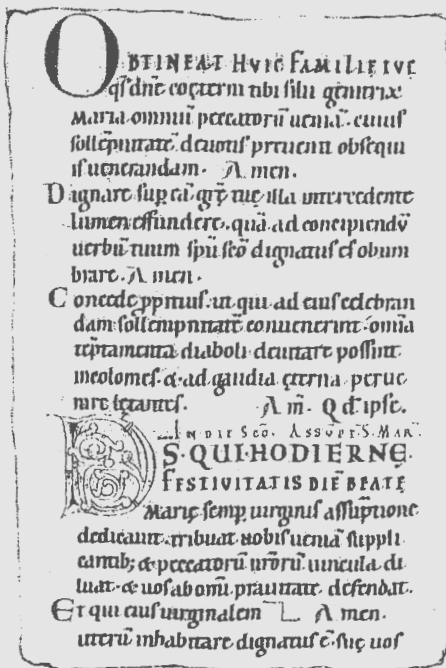 OBTINEAT HVIC FAMILIĘ TVĘ
q̄s dn̄e coęterni tibi filii genitrix
Maria omniū peccatorū ueniā. cuius
sollēpnitatē deuotis preuenit obsequi
is uenerandam. Amen.
Dignare sup eā grē tuę illa interuedente
lumen effundere. quā ad concipiendū
uerbū tuum spū scō dignatus es obum
brare. Amen.
Concede ppitius. ut qui ad eius celebran
dam sollempnitatē conuenerint. om̄ia
tēptamenta diaboli deuitare possint
incolomes. & ad gaudia ęterna perue
nire lętantes. Am̄. Qd̄ ipse.
IN DIE SCŌ. ASSUPT. S. MAR̄
DS. QUI HODIERNĘ.
FESTIVITATIS DIĒ BEATĘ
Marię semp uirginis assūptione
dedicauit. tribuat uobis ueniā suppli
cantib; & peccatorū urōrū uincula di
luat. & uos ab omī prauitate defendat.
Et qui eius uirginalem Amen.
uterū inhabitare dignatus ē. suę uos